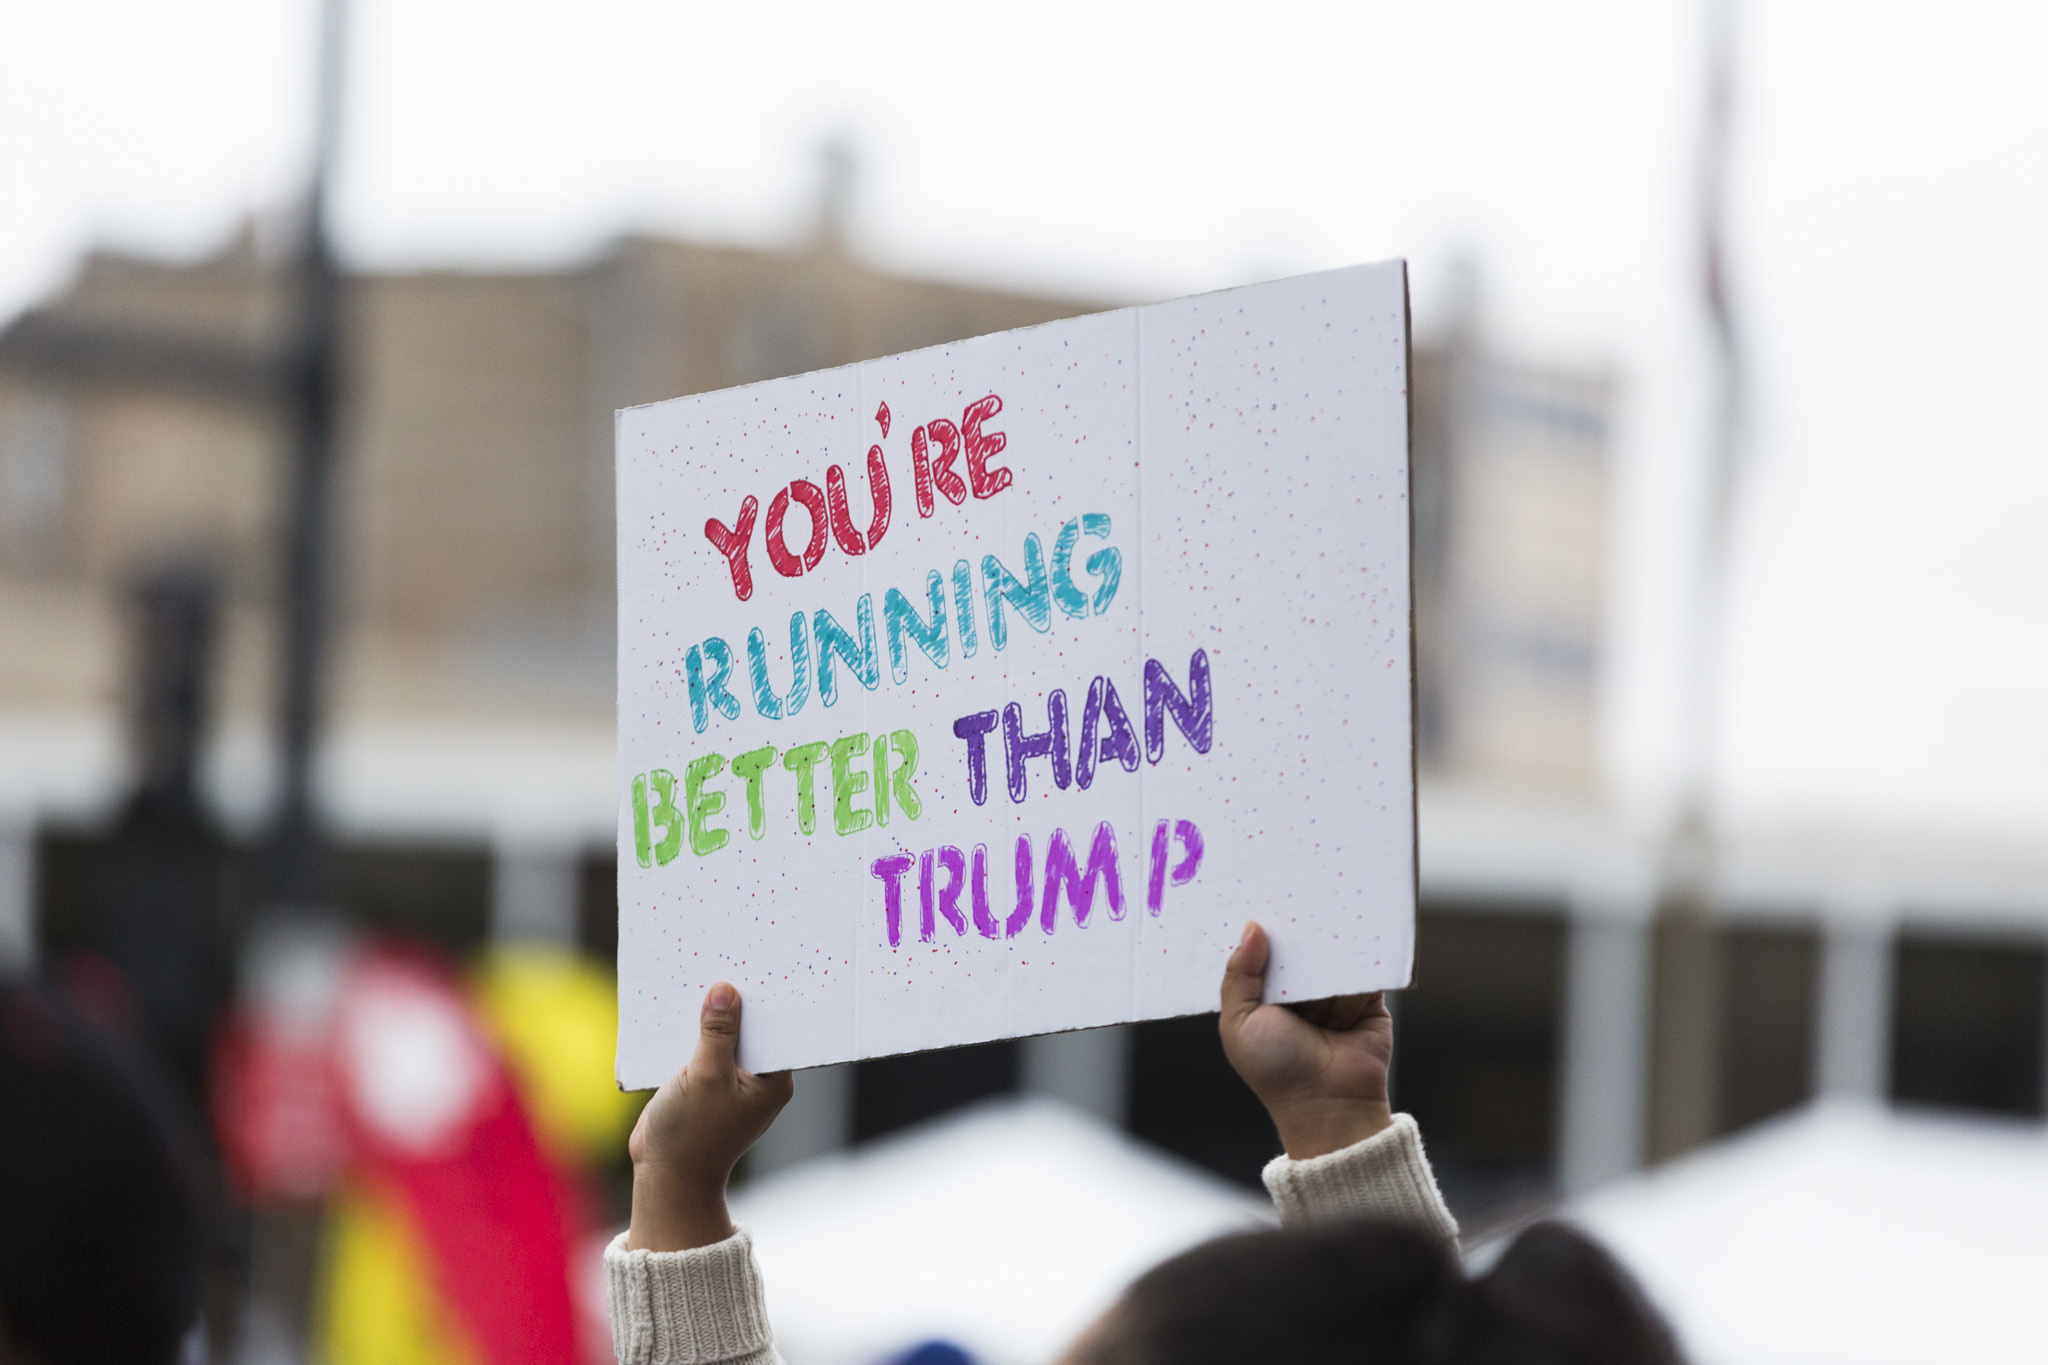 YOU'RE
RUNNING
BETTER THAN
TRUMP